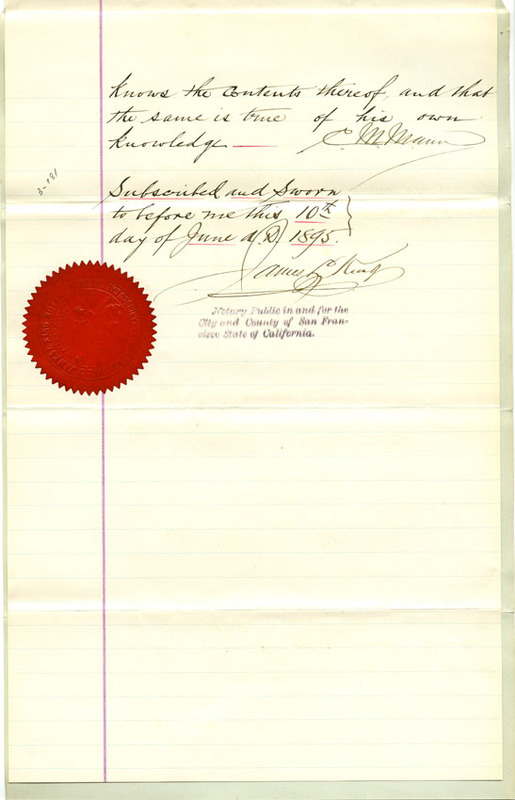 knows the contents thereof, and that
the same is true of his own
knowledge
C. M. Mann
3-181
Subscribed and Sworn
to before me this 10th
day of June A.D. 1895.
James L. King
Notary Public in and for the
City and County of San Fran-
cisco State of California.